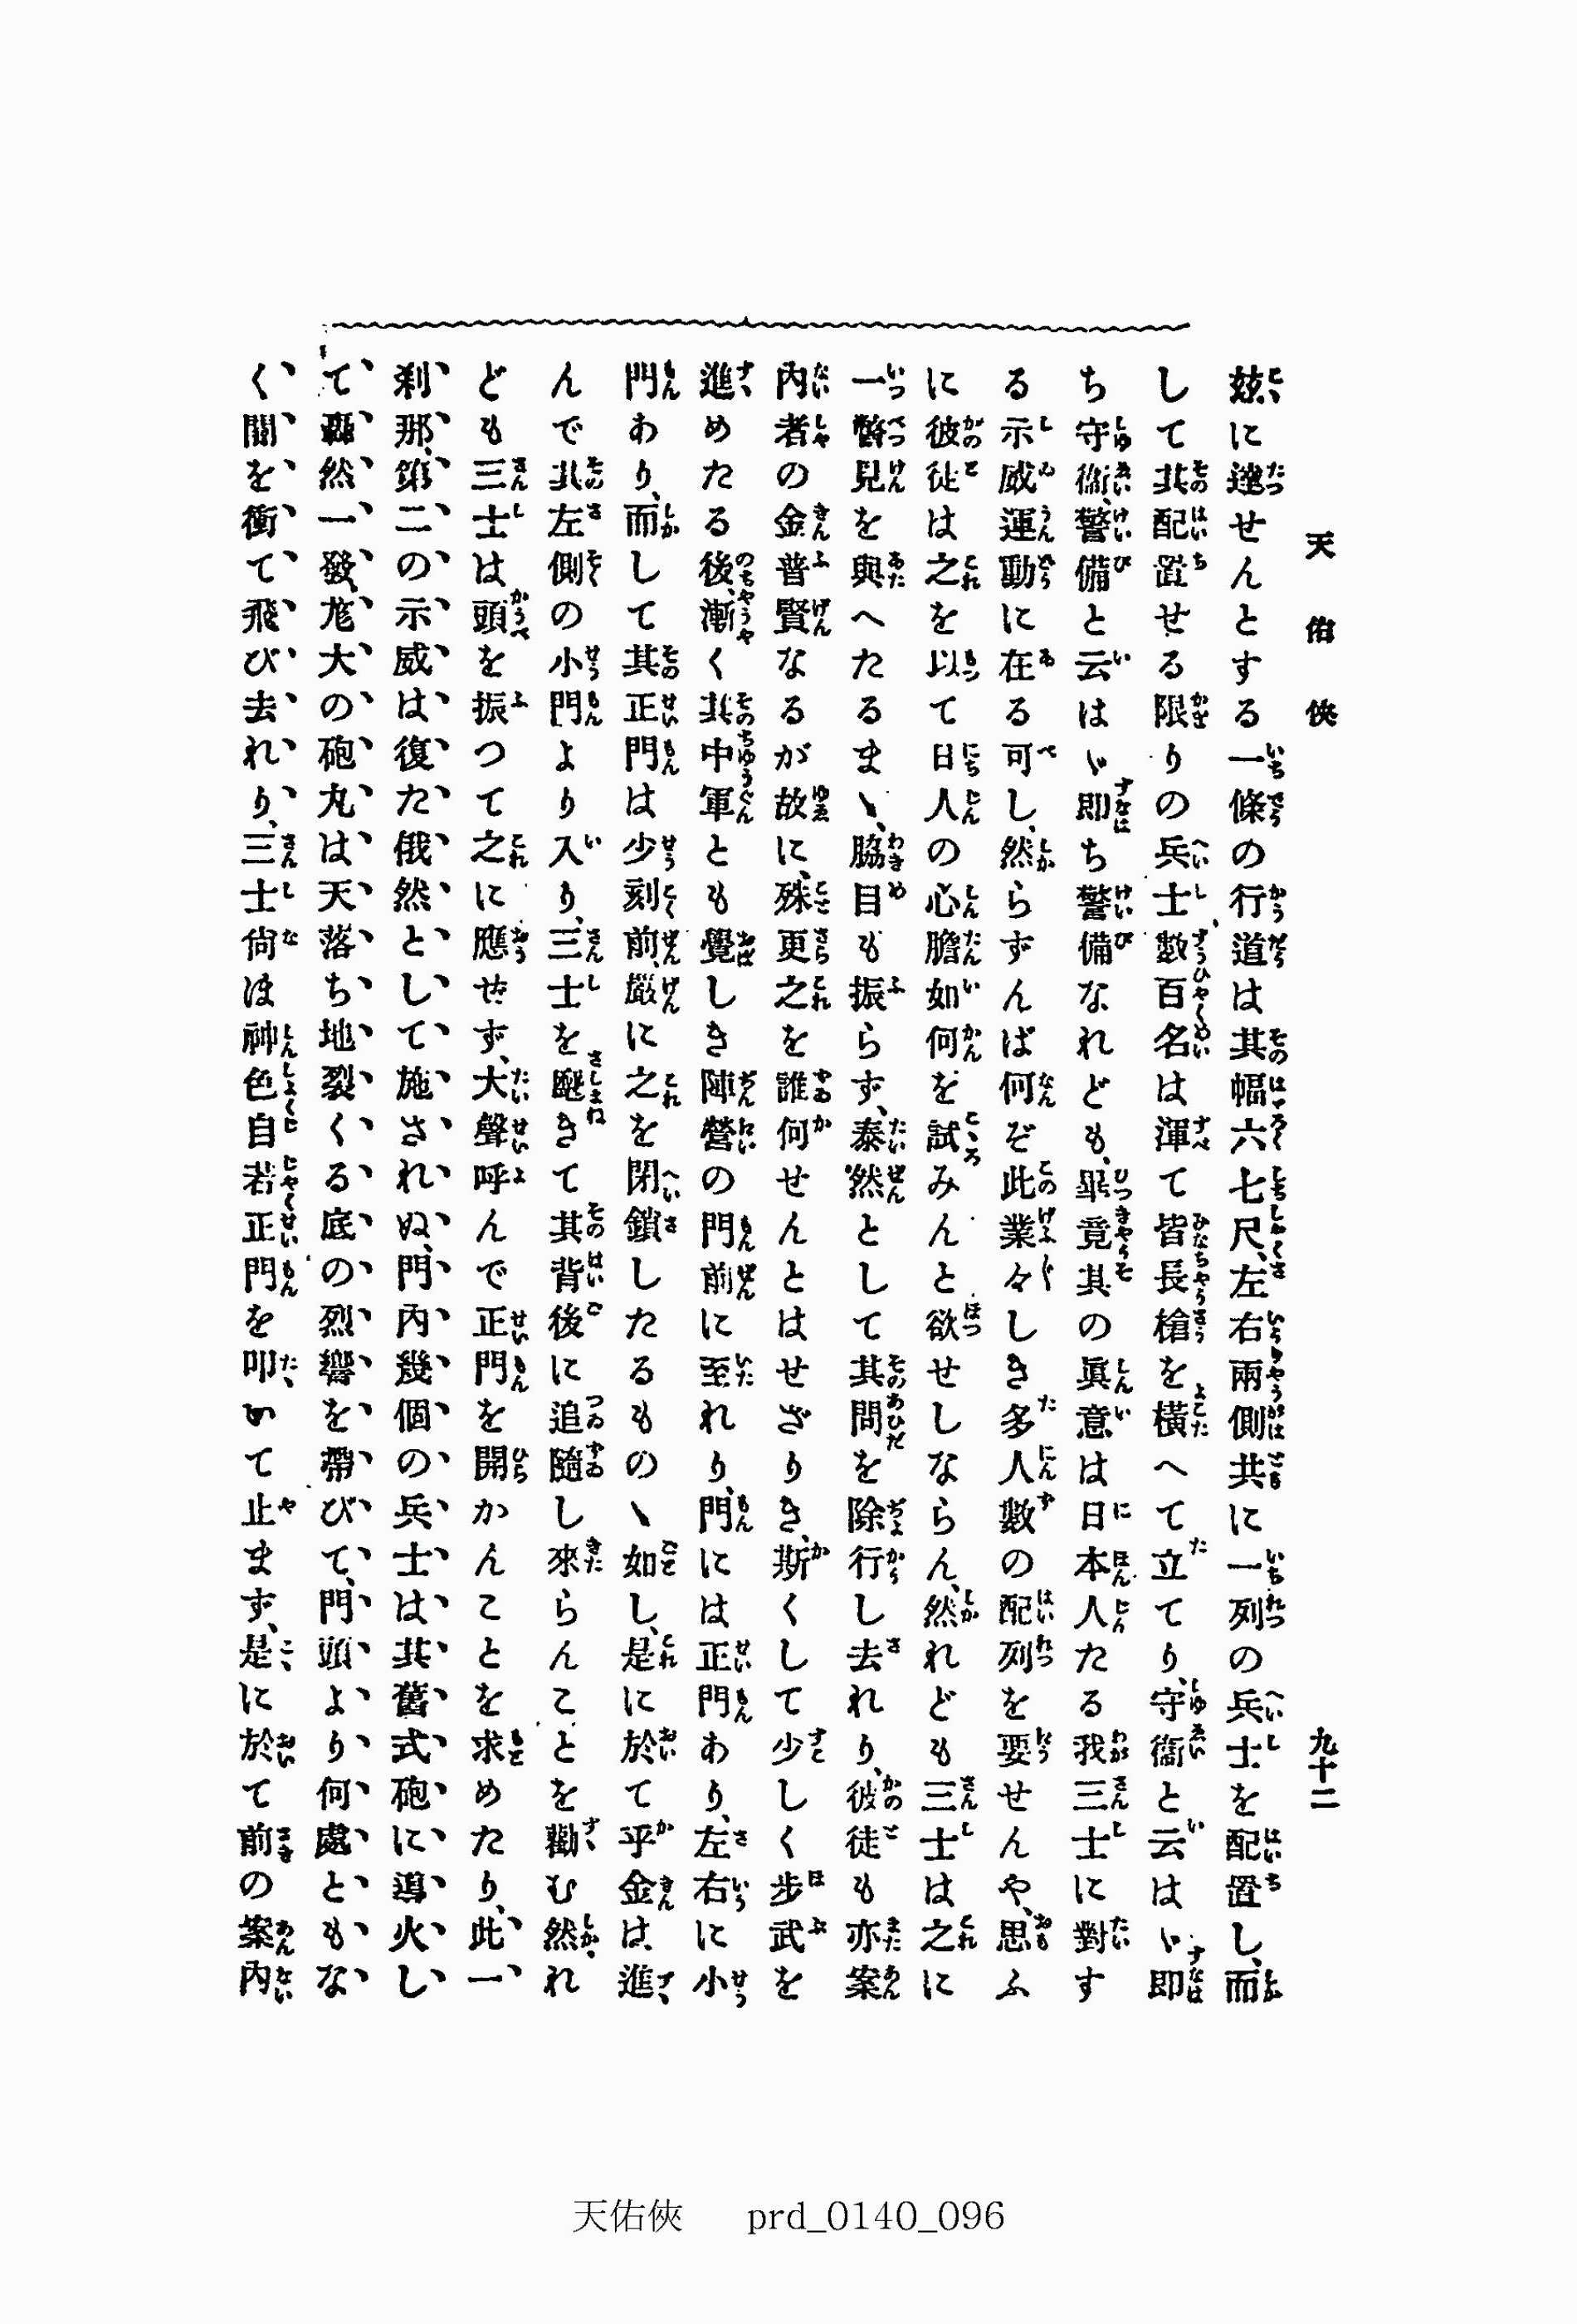 天佑俠
九十二
玆に達せんとする一條の行道は其幅六七尺、左右兩側共に一列の兵士を配置し、而
して其配置せる限りの兵士、數百名は渾て皆長槍を横へて立てり、守衞と云はゞ即
ち守衞、警備と云はゞ即ち警備なれども、畢竟其の眞意は日本人たる我三士に對す
る示威運動に在る可し、然らずんば何ぞ此業々しき多人數の配列を要せんや、思ふ
に彼徒は之を以て日人の心膽如何を試みんと欲せしならん、然れども三士は之に
一瞥見を與へたるまゝ、脇目も振らず、泰然として其間を除行し去れり、彼徒も亦案
内者の金普賢なるが故に、殊更之を誰何せんとはせざりき、斯くして少しく歩武を
進めたる後、漸く其中軍とも覺しき陣營の門前に至れり、門には正門あり、左右に小
門あり、而して其正門は少刻前、嚴に之を閉鎖したるものゝ如し、是に於て乎金は進
んで其左側の小門より入り、三士を麾きて其背後に追隨し來らんことを勸む然れ
ども三士は頭を振つて之に應せず、大聲呼んで正門を開かんことを求めたり、此一
刹那、第二の示威は復た俄然として施されぬ、門内幾個の兵士は其舊式砲に導火し
て轟然一發、尨大の砲丸は天落ち地裂くる底の烈響を帶びて、門頭より何處ともな
く闇を衝て飛び去れり、三士尚ほ神色自若正門を叩いて止まず、是に於て前の案内
天佑俠 prd_0140_096